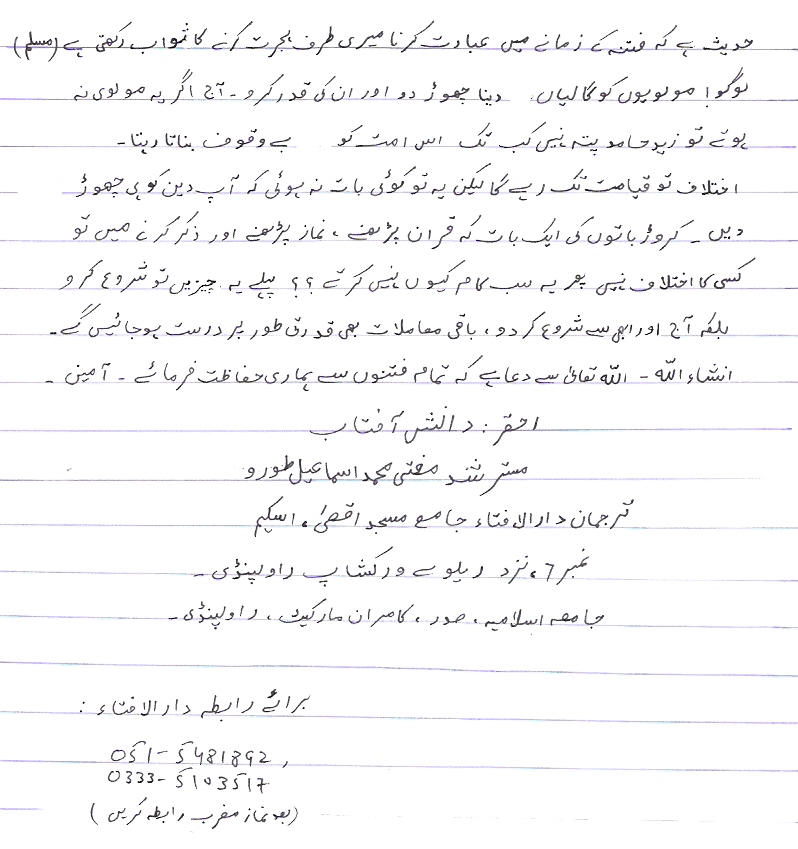 حدیث ہے کہ فتنہ کے زمانے میں عبادت کرنا میری طرف ہجرت کرنے کا ثواب رکھتی ہے (مسلم)
لوگو! مولویوں کو گالیاں دینا چھوڑ دو اور ان کی قدر کرو ۔ آج اگر یہ مولوی نہ
ہوتے تو زید حامد پتہ نہیں کب تک اس امت کو بے وقوف بناتا رہتا ۔
اختلاف تو قیامت تک رہے گا لیکن یہ تو کوئی بات نہ ہوئی کہ آپ دین کو ہی چھوڑ
دیں ۔ کروڑ باتوں کی ایک بات کہ قران پڑھنے ، نماز پڑھنے اور ذکر کرنے میں تو
کسی کا اختلاف نہیں پھر یہ سب کام کیوں نہیں کرتے ؟؟ پہلے یہ چیزیں تو شروع کرو
بلکہ آج اور ابھی سے شروع کر دو ، باقی معاملات بھی قدرتی طور پر درست ہو جائیں گے ۔
انشاء اللہ ۔ اللہ تعالیٰ سے دعا ہے کہ تمام فتنوں سے ہماری حفاظت فرمائے ۔ آمین ۔
احقر : دانش آفتاب
مسترشد مفتی محمد اسماعیل طورو
ترجمان دارالافتاء جامع مسجد اقصیٰ ، اسکیم
نمبر 7 ، نزد ریلوے ورکشاپ راولپنڈی ۔
جامعہ اسلامیہ ، صدر ، کامران مارکیٹ ، راولپنڈی ۔
برائے رابطہ دارالافتاء :
051-5481892 ,
0333-5103517
(بعد نماز مغرب رابطہ کریں)